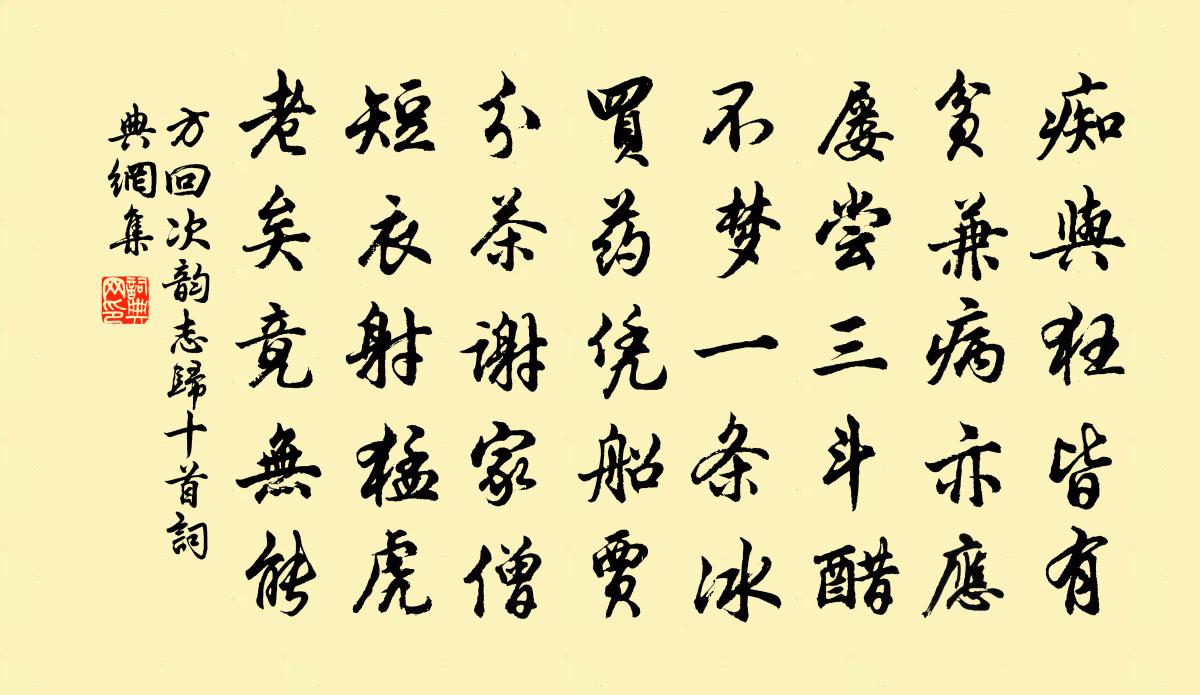 痴與狂皆有
貧兼病亦應
屡尝三斗醋
不梦一条冰
買药凭船賈
分茶谢家僧
短衣射猛虎
老矣竟無能
方回次韵志歸十首詞
典網集
詞典网印